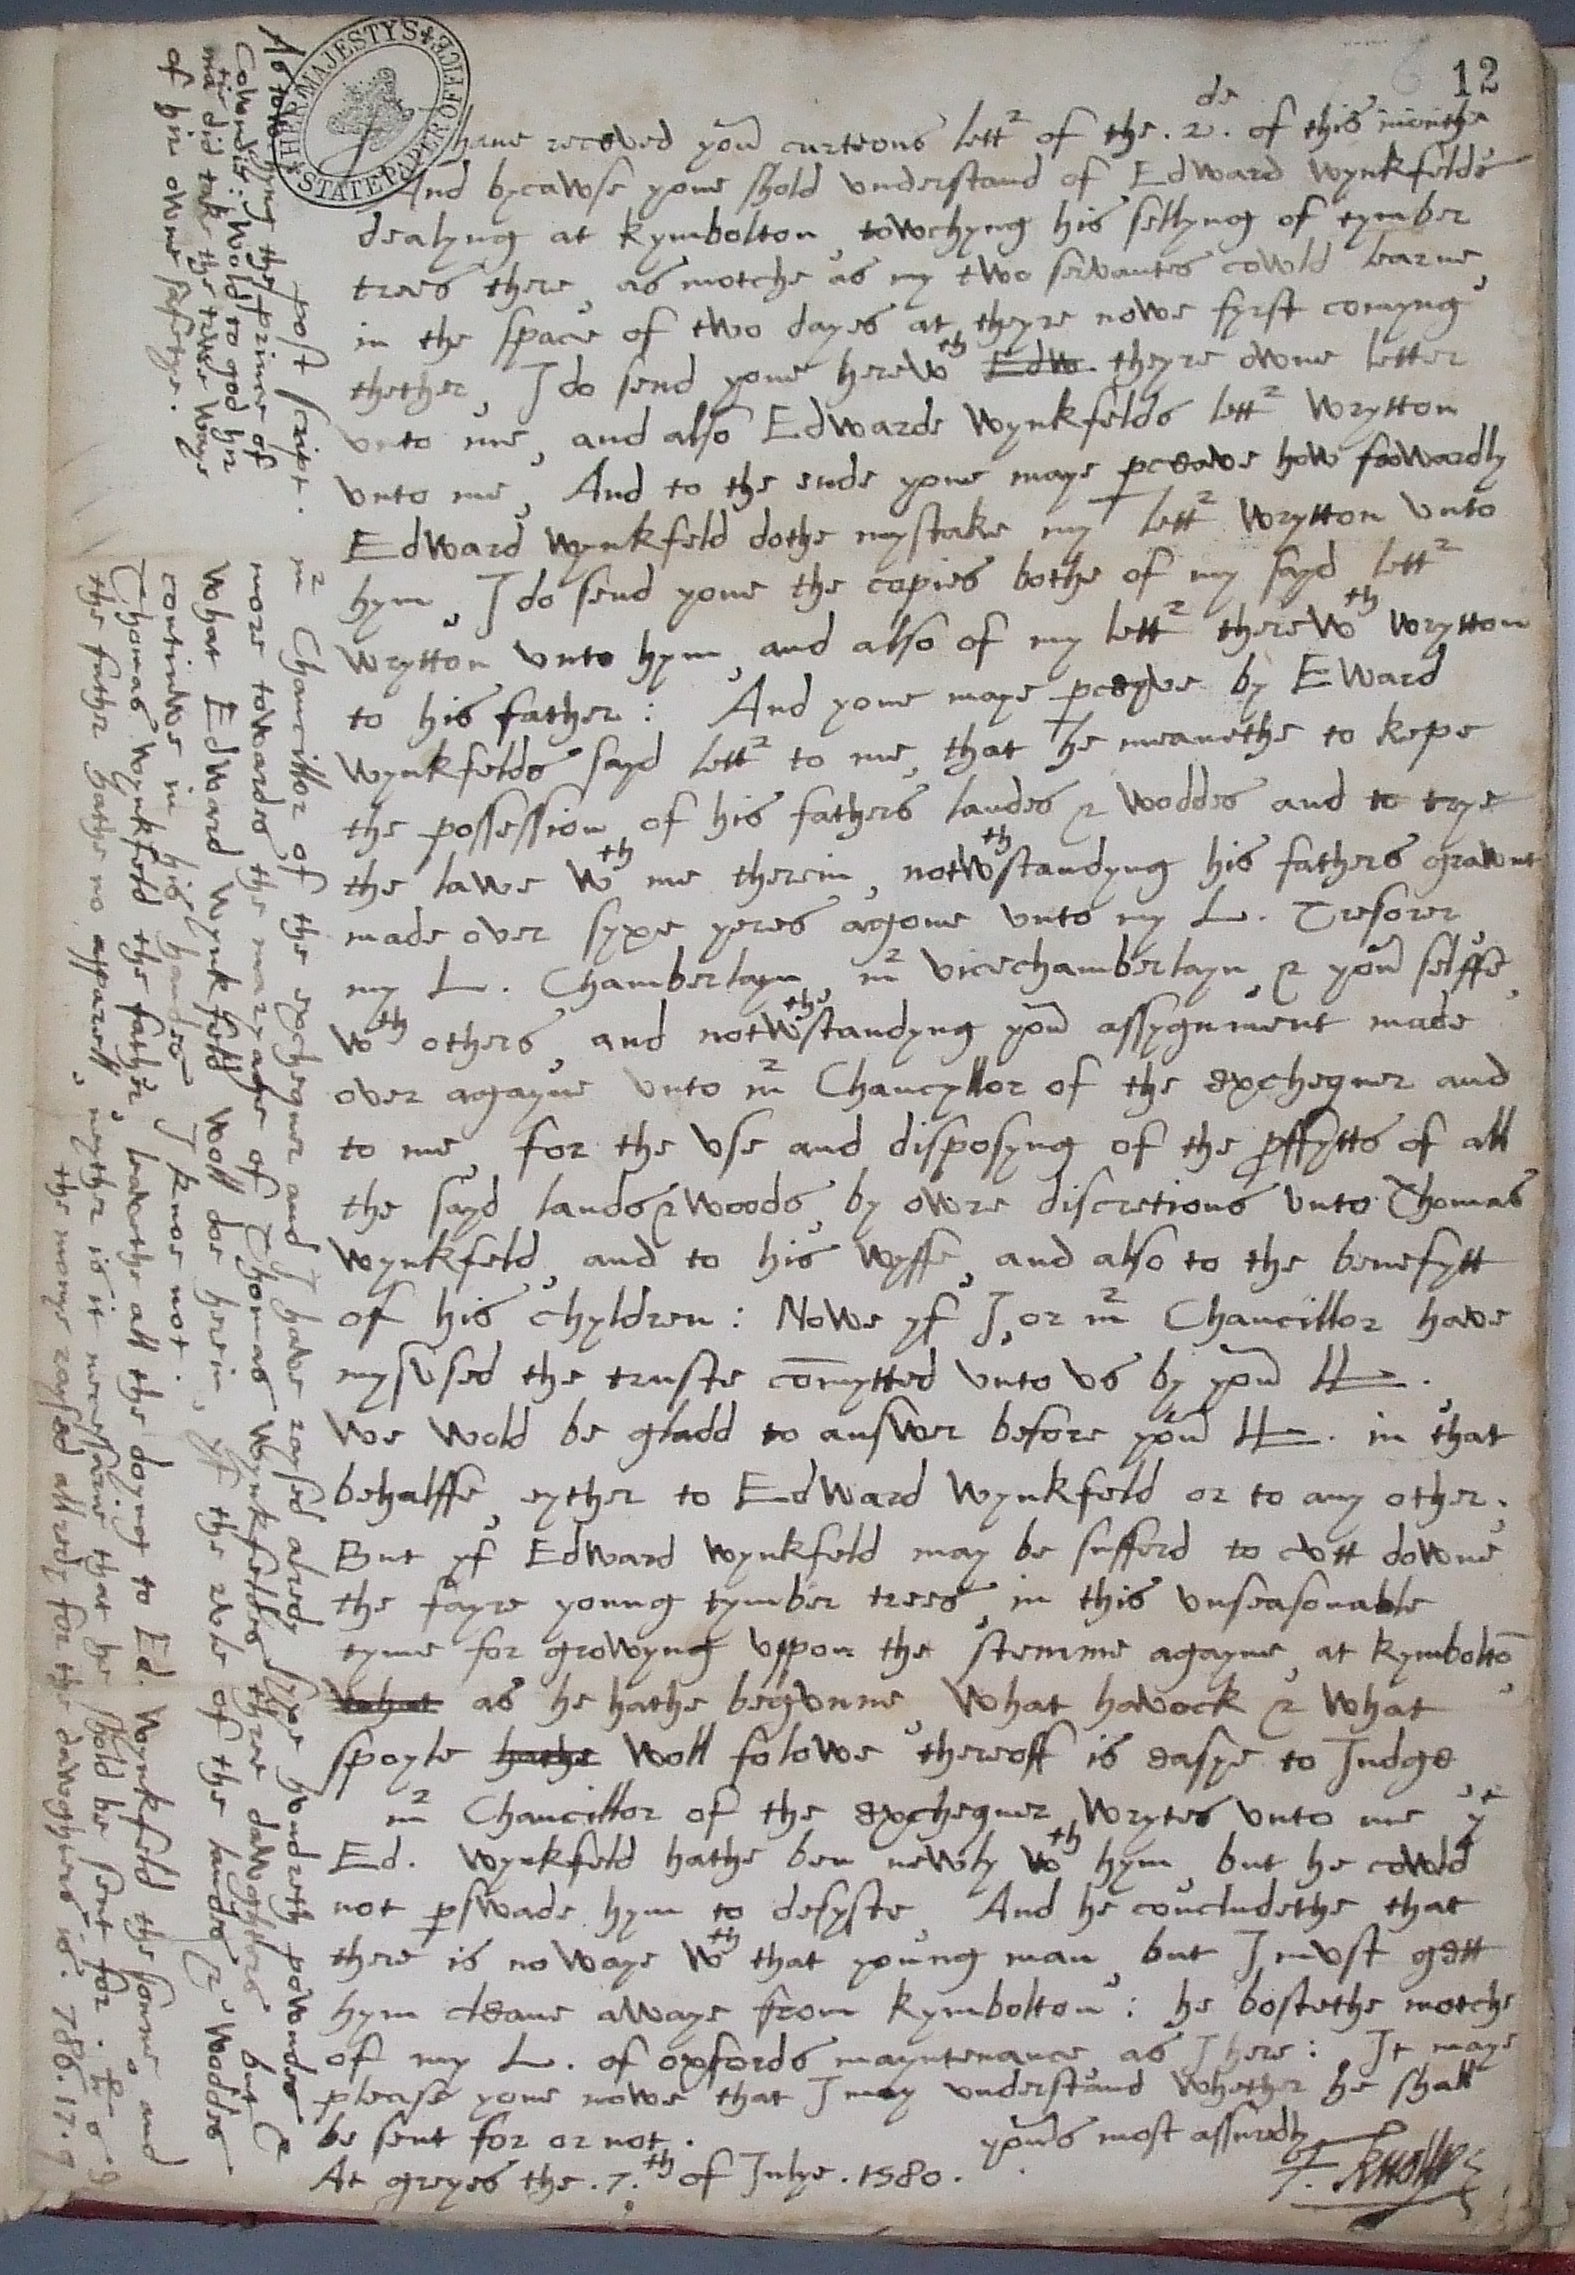 12
HER MAJESTYS STATE PAPER OFFICE
I have receved yor curteous lettr of the .2.de of this monthe
And bycawse yowe shold understand of Edward Wynkfelds
dealyng at kymbolton towchyng his sellyng of tymber
trees there, as motche as my two servantes cowld learne,
in the space of two dayes at theyre nowe fyrst comyng
thether, I do send yowe herewth Edw. theyre owne letter
unto me, and also Edwarde Wynkfelds lettr wrytton
unto me, And to the ende yowe maye pceave how frowardly
Edward Wynkfeld dothe mystake my lettr wrytton unto
hym, I do send yowe the copies bothe of my sayd lettr
wrytton unto hym, and also of my lettr therewth wrytton
to his father: And yowe maye pceyve by Eward
Wynkfelds sayd lettr to me, that he meanethe to kepe
the possession of his fathers landes & woddes and to trye
the lawe wth me therein, notwthstandyng his fathers grawnt
made over syxe yeres agone unto my L. Tresorer
my L. Chamberlayn, mr vicechamberlayn, & yor selffe,
wth others, and notwthstandyng yor assygnment made
over agayne unto mr Chancyllor of the exchequer and
to me, for the use and disposyng of the pffytts of all
the sayd lands & woods, by owre discretions unto Thomas
Wynkfeld, and to his wyffe, and also to the benefytt
of his chyldren: Nowe yf I, or mr Chancillor have
mysused the truste comytted unto us by yor LL.
We wold be gladd to answer before yor LL. in that
behalffe, eyther to Edward Wynkfeld or to any other.
But yf Edward wynkfeld may be sufferd to cutt downe
the fayre young tymber trees, in this unseasonable
tyme for growyng uppon the stemme agayne, at kymbolto
what as he hathe begunne, What havock & what
spoyle hathe woll folowe thereoff is easye to Judge
mr Chancillor of the exchequer wrytes unto me yt
Ed. Wynkfeld hathe ben newly wth hym, but he cowld
not pswade hym to desyste, And he concludethe that
there is no waye wth that young man, but I must gett
hym cleane awaye from kymbolton: he bostethe motche
of my L. of oxfords mayntenance as I here: It maye
please yowe nowe that I may understand whether he shall
be sent for or not.
yors most assuredly
At greyes the .7.th of Julye. 1580.
F. Knollys
post script. mr Chancillor of the exchequer and I have raysed alredy syxe hundreth powndes &
more towardes the maryage of Thomas Wynkfeldes thre dawghters but
what Edward Wynkfeld woll doe herein, yf the rule of the landes & woddes
continwe in his handes I knoe not.
Thomas Wynkfeld the father, leavethe all the doyng to Ed. Wynkfeld the sonne, and
the father hathe no apparell, nyther is it necessarie that he shold be sent for.
the monye raysed allredy for the dawghters is. 786. 17. 9
As towchyng the prince of
Condie: Wold to god his
matie did take the trwe waye
of his owne safetye.